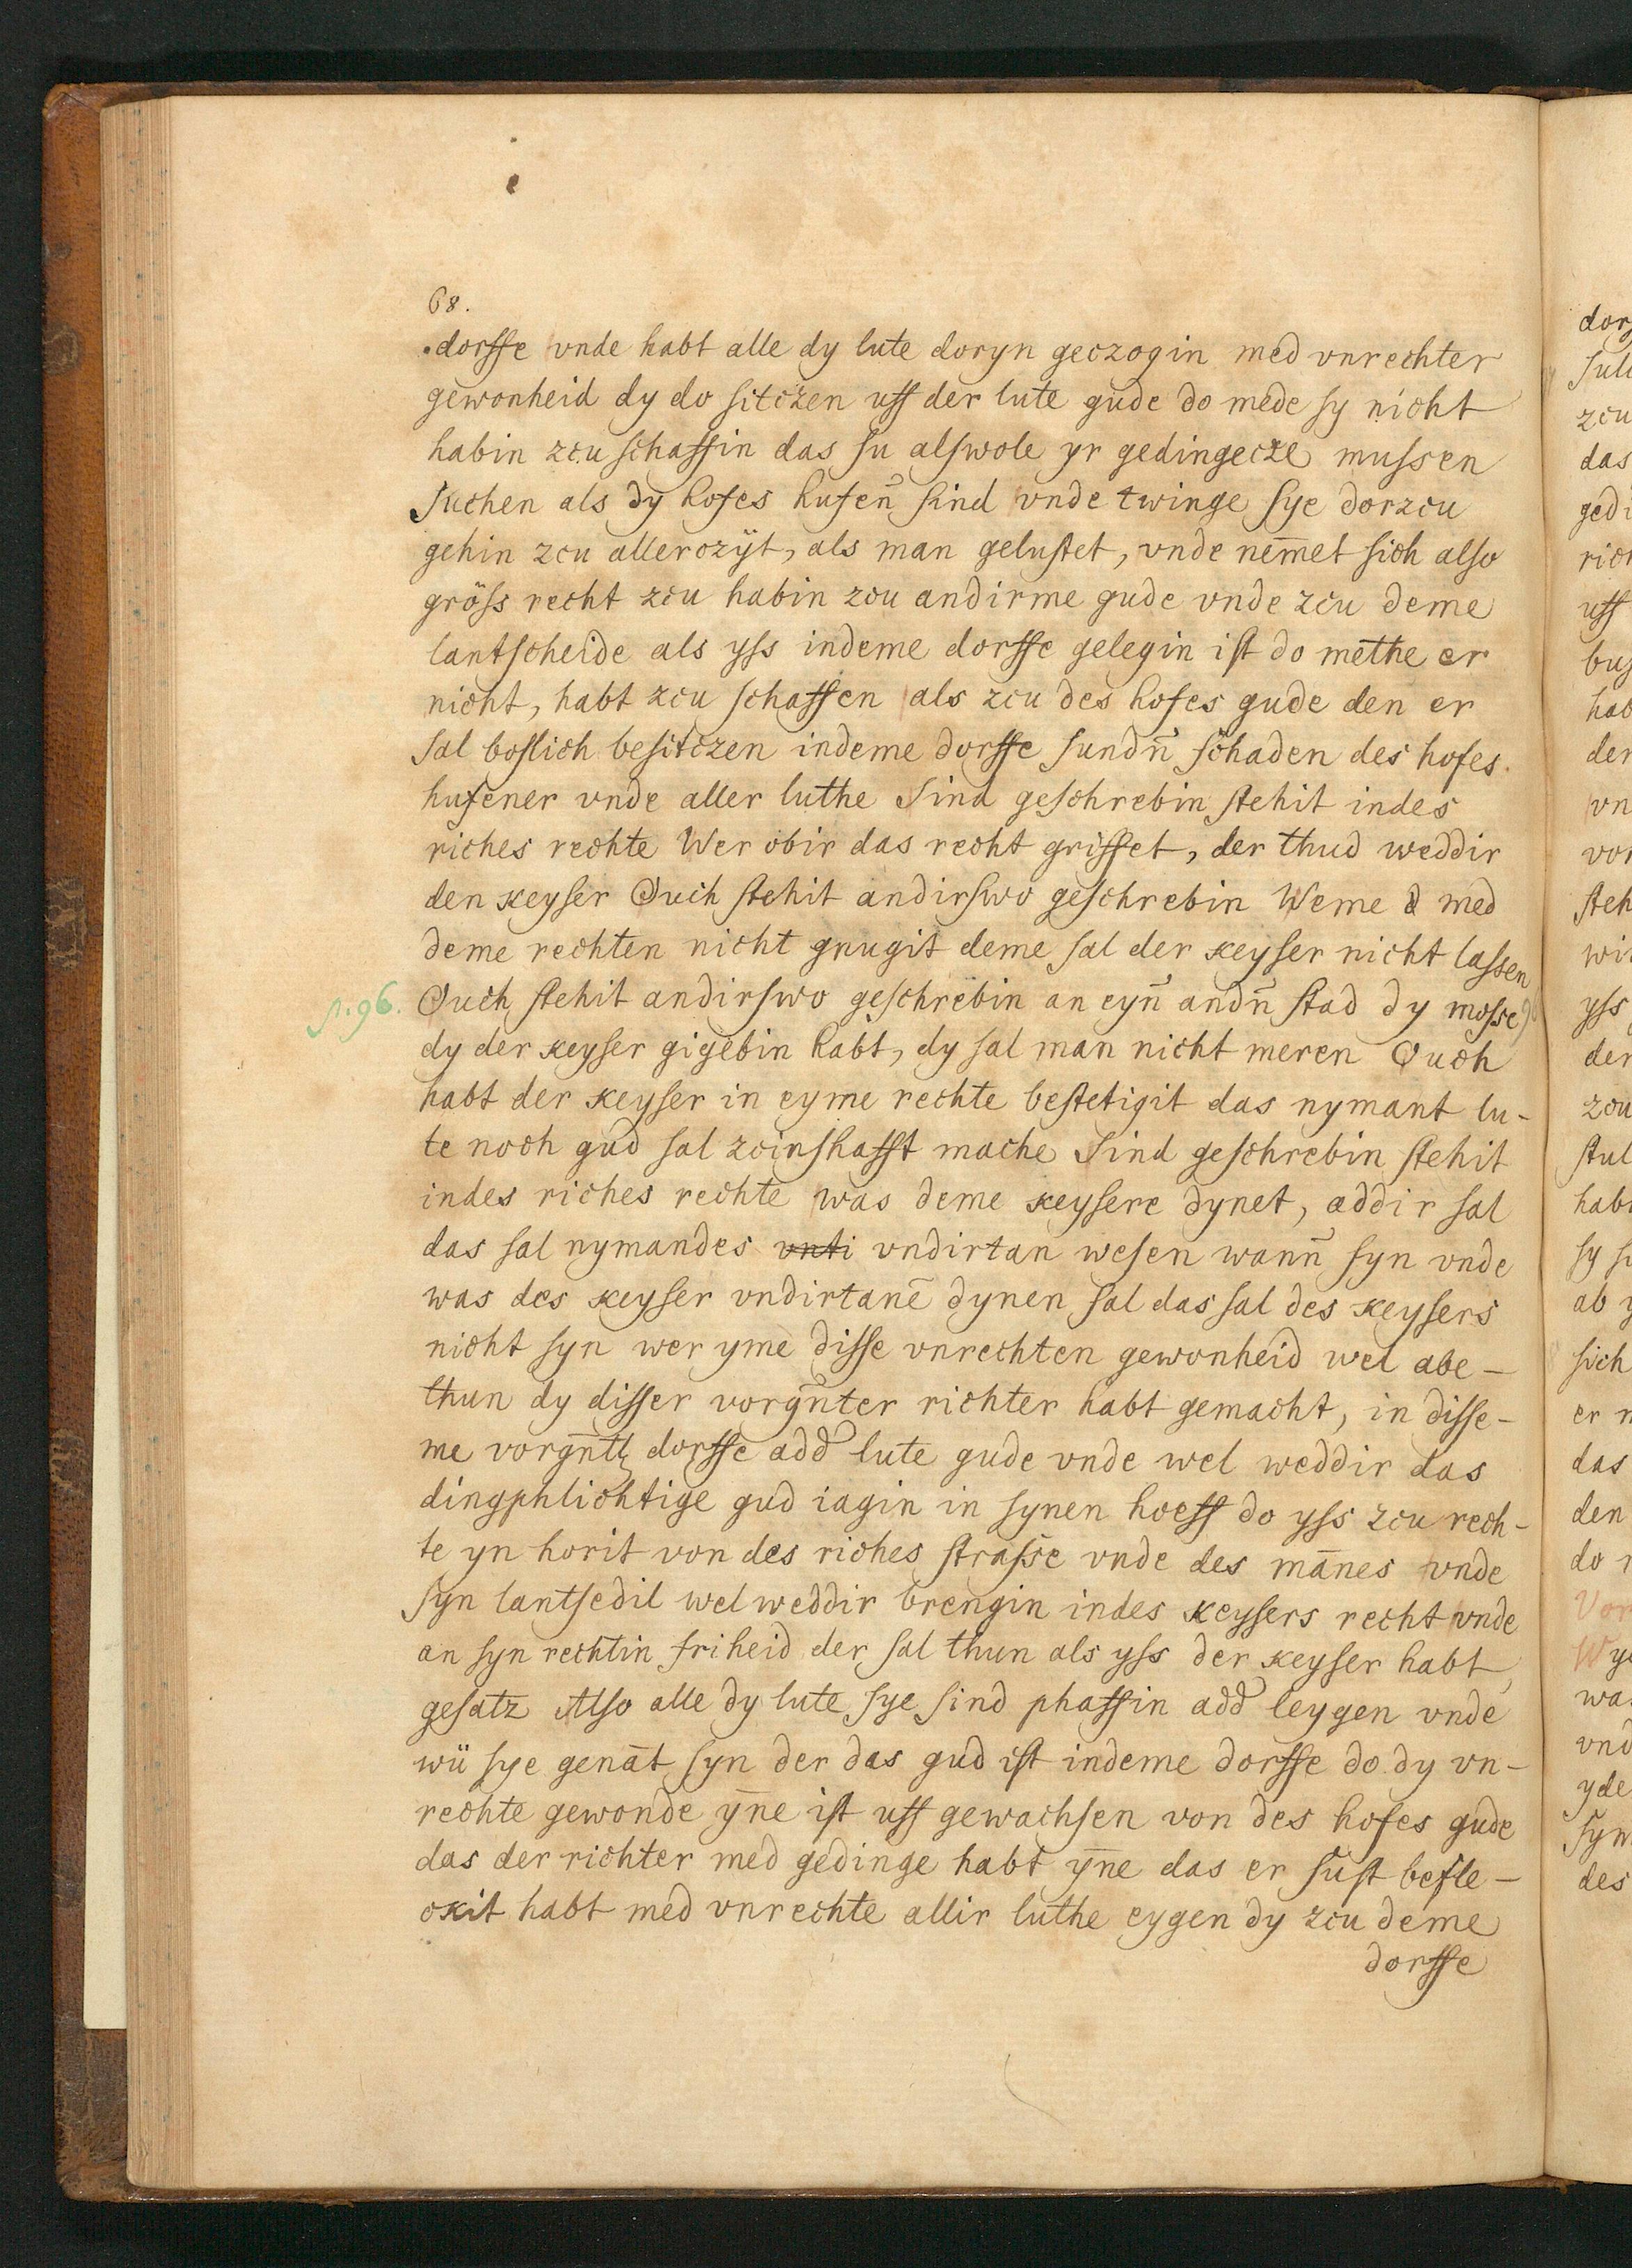 68.
dorffe vnde habt alle dy lute doryn geczogin med vnrechter
gewonheid dy do sitczen uff der lute gude do mede sy nicht
habin zcu schaffin das su alswole yr gedingecze mussen
suchen als dy hofes hufen̄ sind vnde twinge sye dorzcu
gehin zcu allerczÿt, als man gelustet, vnde nem̄et sich also
gröss recht zcu habin zcu andirme gude vnde zcu deme
lantscheide als yss indeme dorffe gelegin ist do methe er
nicht, habt zcu schaffen als zcu des hofes gude den er
sal boslich besitczen indeme dorffe sundn̄ schaden des hofes
hufener vnde aller luthe Sind geschrebin stehit indes
riches rechte Wer obir das recht griffet, der thud weddir
den keyser Ouch stehit andirswo geschrebin Weme d med
deme rechten nicht gnugit deme sal der keyser nicht lassen
p. 96. Ouch stehit andirswo geschrebin an eyn̄ andn̄ stad dy mosse
dy der keyser gigebin habt, dy sal man nicht meren Ouch
habt der keyser in eyme rechte bestetigit das nymant lu-
te noch gud sal zcinshafft mache Sind geschrebin stehit
indes riches rechte was deme keysere dynet, addir sal
das sal nymandes vnti vndirtan wesen wann̄ syn vnde
was des keyser vndirtanē dynen sal das sal des keysers
nicht syn wer yme disse vnrechten gewonheid wel abe-
thun dy disser vorgn̄ter richter habt gemacht, in disse-
me vorgn̄t dorffe add lute gude vnde wel weddir das
dingphlichtige gud iagin in synen hoeff do yss zcu rech-
te yn horit von des riches strasse vnde des mānes vnde
syn lantsedil wel weddir brengin indes keysers recht vnde
an syn rechtin friheid der sal thun als yss der keyser habt
gesatz Also alle dy lute sye sind phaffin add leygen vnde
wü sye genāt syn der das gud ist indeme dorffe do dy vn-
rechte gewonde ȳne ist uff gewachsen von des hofes gude
das der richter med gedinge habt ȳne das er sust befle-
ckit habt med vnrechte allir luthe eygen dy zcu deme
dorffe